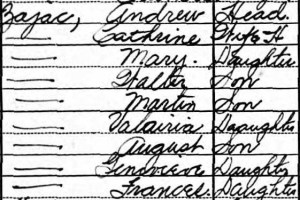 Zajac, Andrew Head
— Cathrine Wife-H
— Mary. Daughter
— Walter Son
— Martin Son
— Valairia Daughter
— August Son
— Genovieve Daughter
— Frances. Daughter